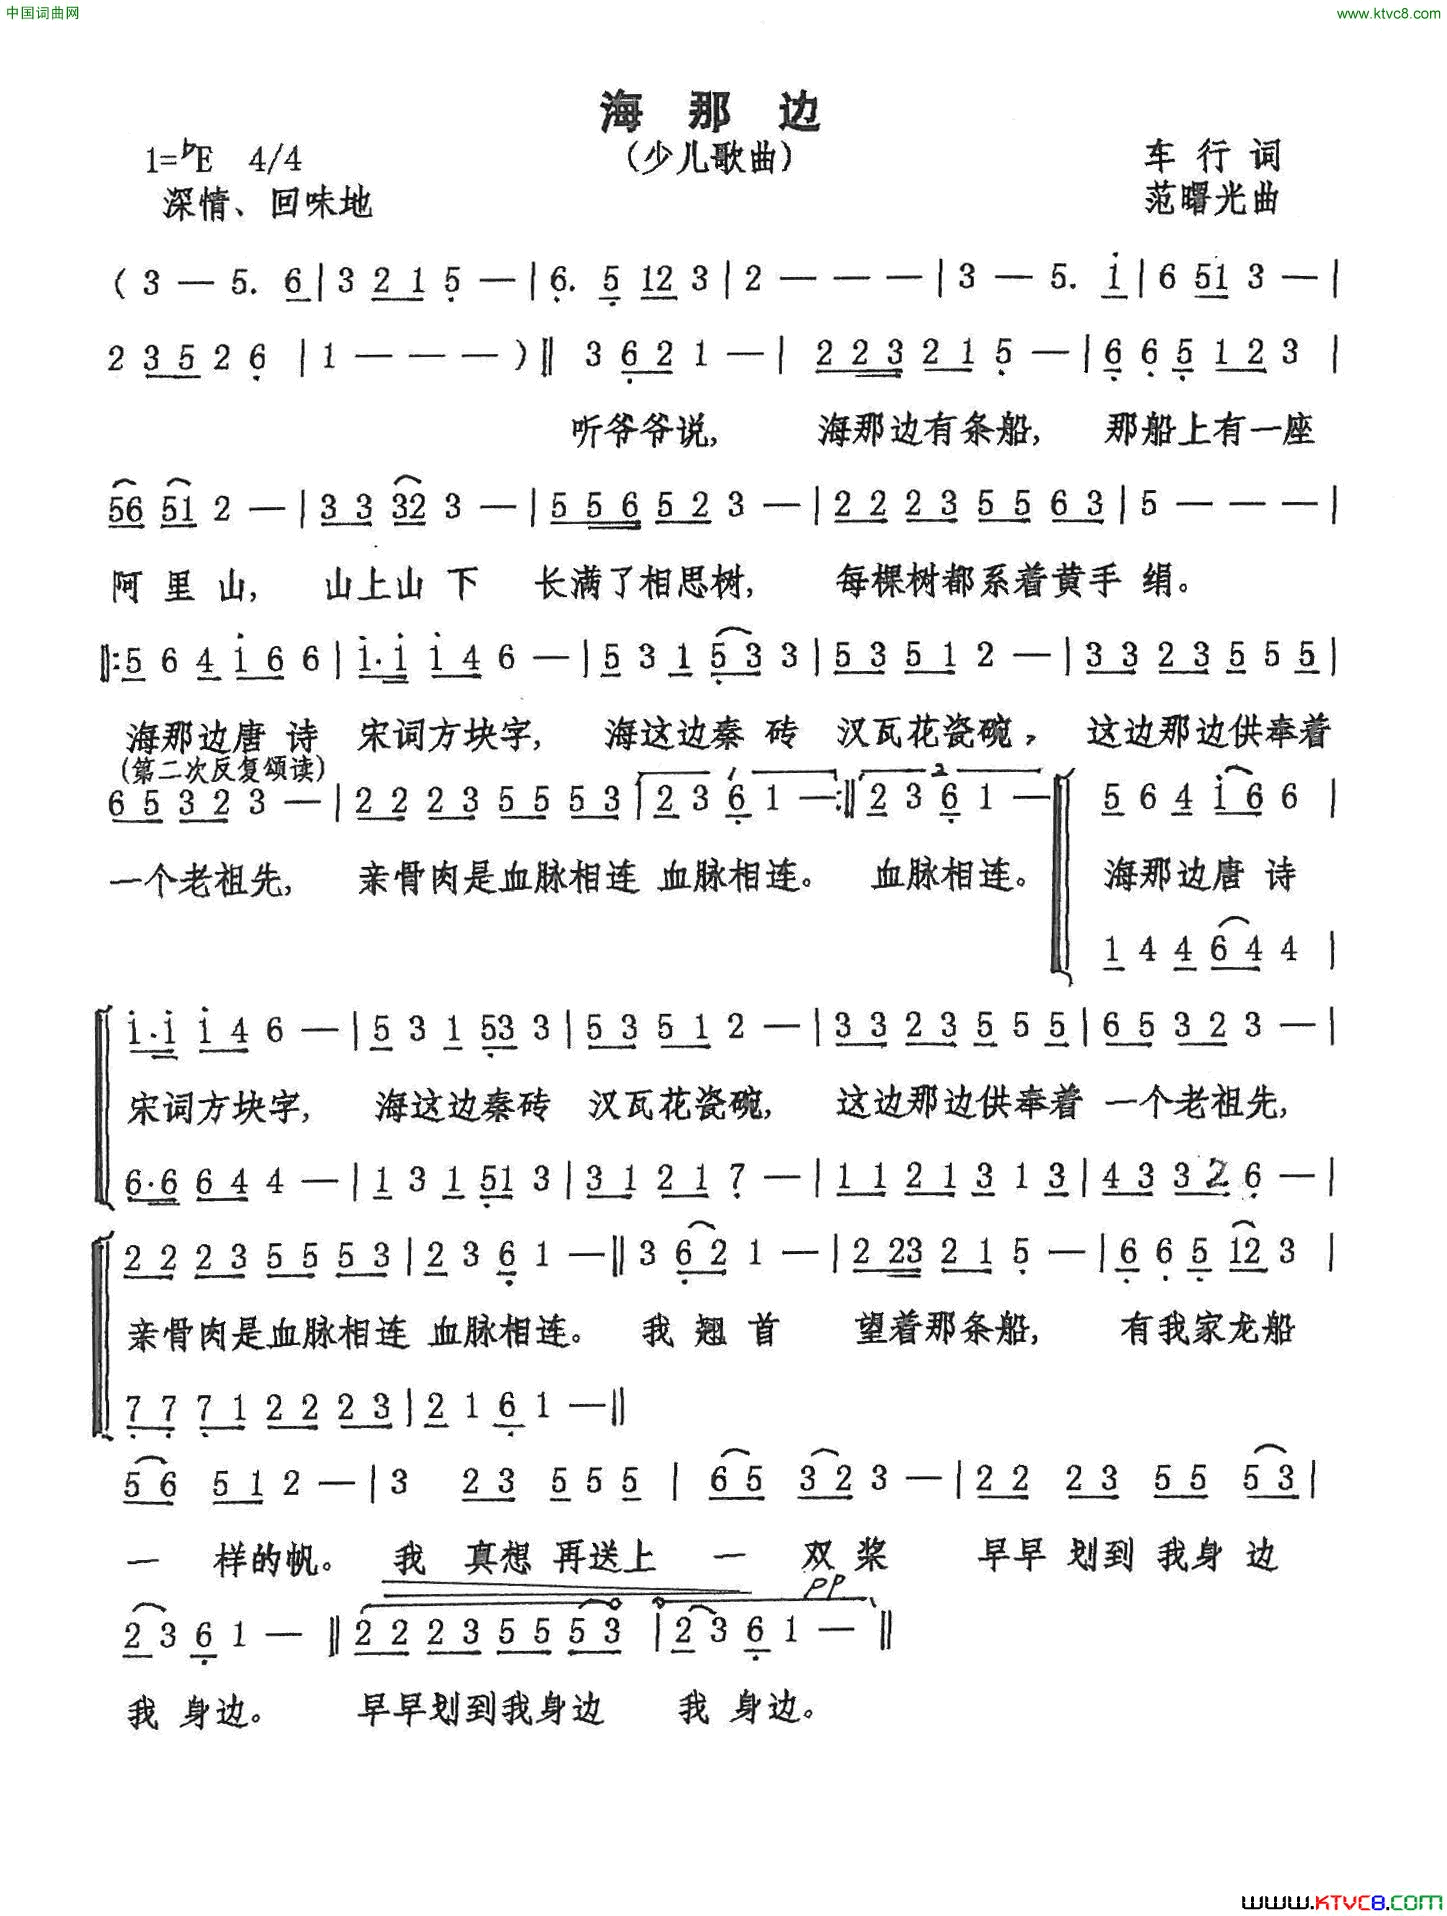 中国词曲网 www.ktvc8.com
海 那 边
1=♭E 4/4 (少儿歌曲) 车 行 词
深情、回味地 范曙光曲
( 3 — 5. 6 | 3 2 1 5 — | 6. 5 12 3 | 2 — — — | 3 — 5. i | 6 51 3 — |
2 3 5 2 6 | 1 — — — ) || 3 6 2 1 — | 2 2 3 2 1 5 — | 6 6 5 1 2 3 |
听爷爷说, 海那边有条船, 那船上有一座
56 51 2 — | 3 3 32 3 — | 5 5 6 5 2 3 — | 2 2 2 3 5 5 6 3 | 5 — — — |
阿 里 山, 山上山 下 长满了相思树, 每棵树都系着黄手 绢。
||: 5 6 4 i 6 6 | i· i i 4 6 — | 5 3 1 5 3 3 | 5 3 5 1 2 — | 3 3 2 3 5 5 5 |
海那边唐 诗 宋词方块字, 海这边秦 砖 汉瓦花瓷碗, 这边那边供奉着
(第二次反复颂读)
1 2
6 5 3 2 3 — | 2 2 2 3 5 5 5 3 | 2 3 6 1 — :|| 2 3 6 1 — 5 6 4 i 6 6 |
一个老祖先, 亲骨肉是血脉相连 血脉相连。 血脉相连。 海那边唐 诗
1 4 4 6 4 4 |
i· i i 4 6 — | 5 3 1 53 3 | 5 3 5 1 2 — | 3 3 2 3 5 5 5 | 6 5 3 2 3 — |
宋词方块字, 海这边秦砖 汉瓦花瓷碗, 这边那边供奉着 一个老祖先,
6·6 6 4 4 — | 1 3 1 51 3 | 3 1 2 1 7 — | 1 1 2 1 3 1 3 | 4 3 3 2 6 — |
2 2 2 3 5 5 5 3 | 2 3 6 1 — || 3 6 2 1 — | 2 23 2 1 5 — | 6 6 5 12 3 |
亲骨肉是血脉相连 血脉相连。 我 翘 首 望着那条船, 有我家龙船
7 7 7 1 2 2 2 3 | 2 1 6 1 — ||
5 6 5 1 2 — | 3 2 3 5 5 5 | 6 5 3 2 3 — | 2 2 2 3 5 5 5 3 |
一 样的帆。 我 真想 再送上 一 双 桨 早早 划到 我身 边
pp
2 3 6 1 — || 2 2 2 3 5 5 5 3 | 2 3 6 1 — ||
我 身边。 早早划到我身边 我 身边。
www.KTVC8.COM